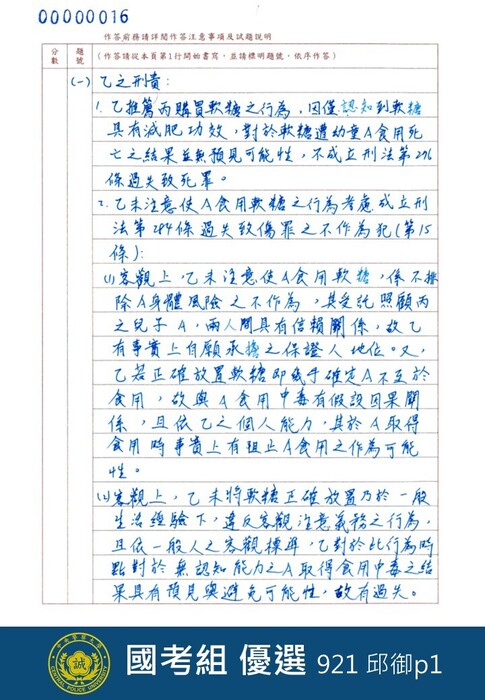 00000016
作答前務請詳閱作答注意事項及試題說明
分數
題號
(作答請從本頁第1行開始書寫,並請標明題號,依序作答)
(一) 乙之刑責:
1. 乙推薦丙購買軟糖之行為,因僅認知到軟糖
具有減肥功效,對於軟糖遭幼童A食用死
亡之結果並無預見可能性,不成立刑法第276
條過失致死罪。
2. 乙未注意使A食用軟糖之行為考慮成立刑
法第284條過失致傷罪之不作為犯(第15
條):
(1)客觀上,乙未注意使A食用軟糖,係不排
除A身體風險之不作為,其受託照顧丙
之兒子A,兩人間具有信賴關係,故乙
有事實上自願承擔之保證人地位。又,
乙若正確放置軟糖即幾乎確定A不至於
食用,故與A食用中毒有假設因果關
係,且依乙之個人能力,其於A取得
食用時事實上有阻止A食用之作為可能
性。
(2)客觀上,乙未將軟糖正確放置乃於一般
生活經驗下,違反客觀注意義務之行為,
且依一般人之客觀標準,乙對於此行為時
點對於無認知能力之A取得食用中毒之結
果具有預見與避免可能性,故有過失。
誠
CENTRAL POLICE UNIVERSITY
國考組 優選 921 邱御p1